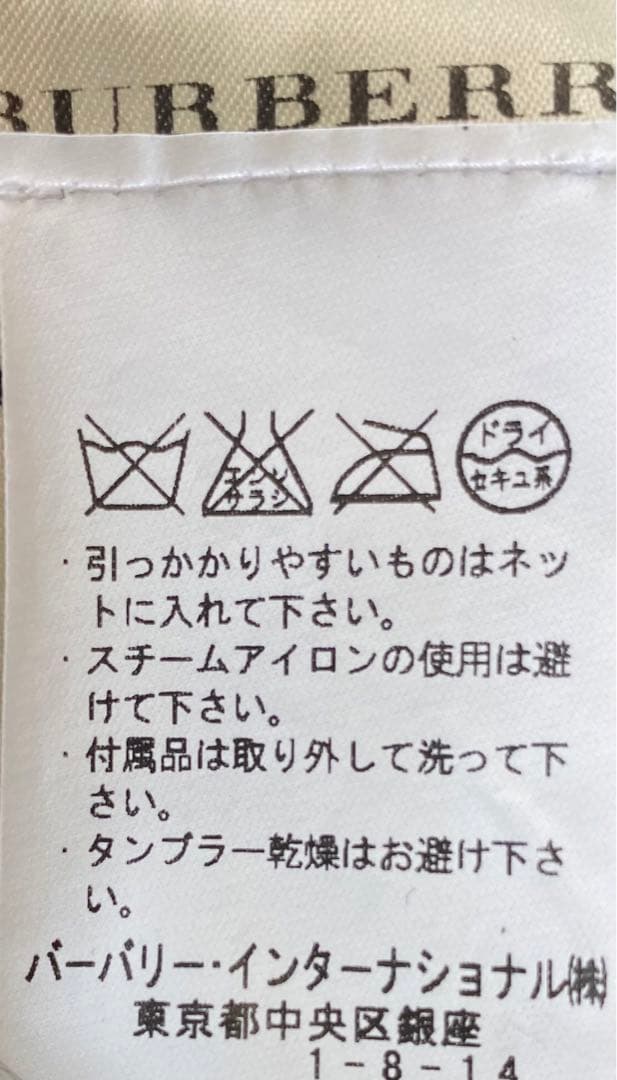 BURBERR
エンソ
サラシ
ドライ
セキユ系
・引っかかりやすいものはネッ
トに入れて下さい。
・スチームアイロンの使用は避
けて下さい。
・付属品は取り外して洗って下
さい。
・タンブラー乾燥はお避け下さ
い。
バーバリー・インターナショナル㈱
東京都中央区銀座
1-8-14